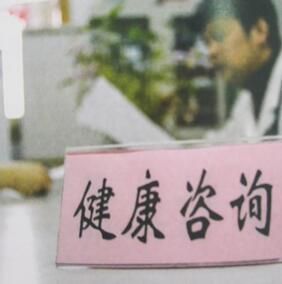 健康咨询